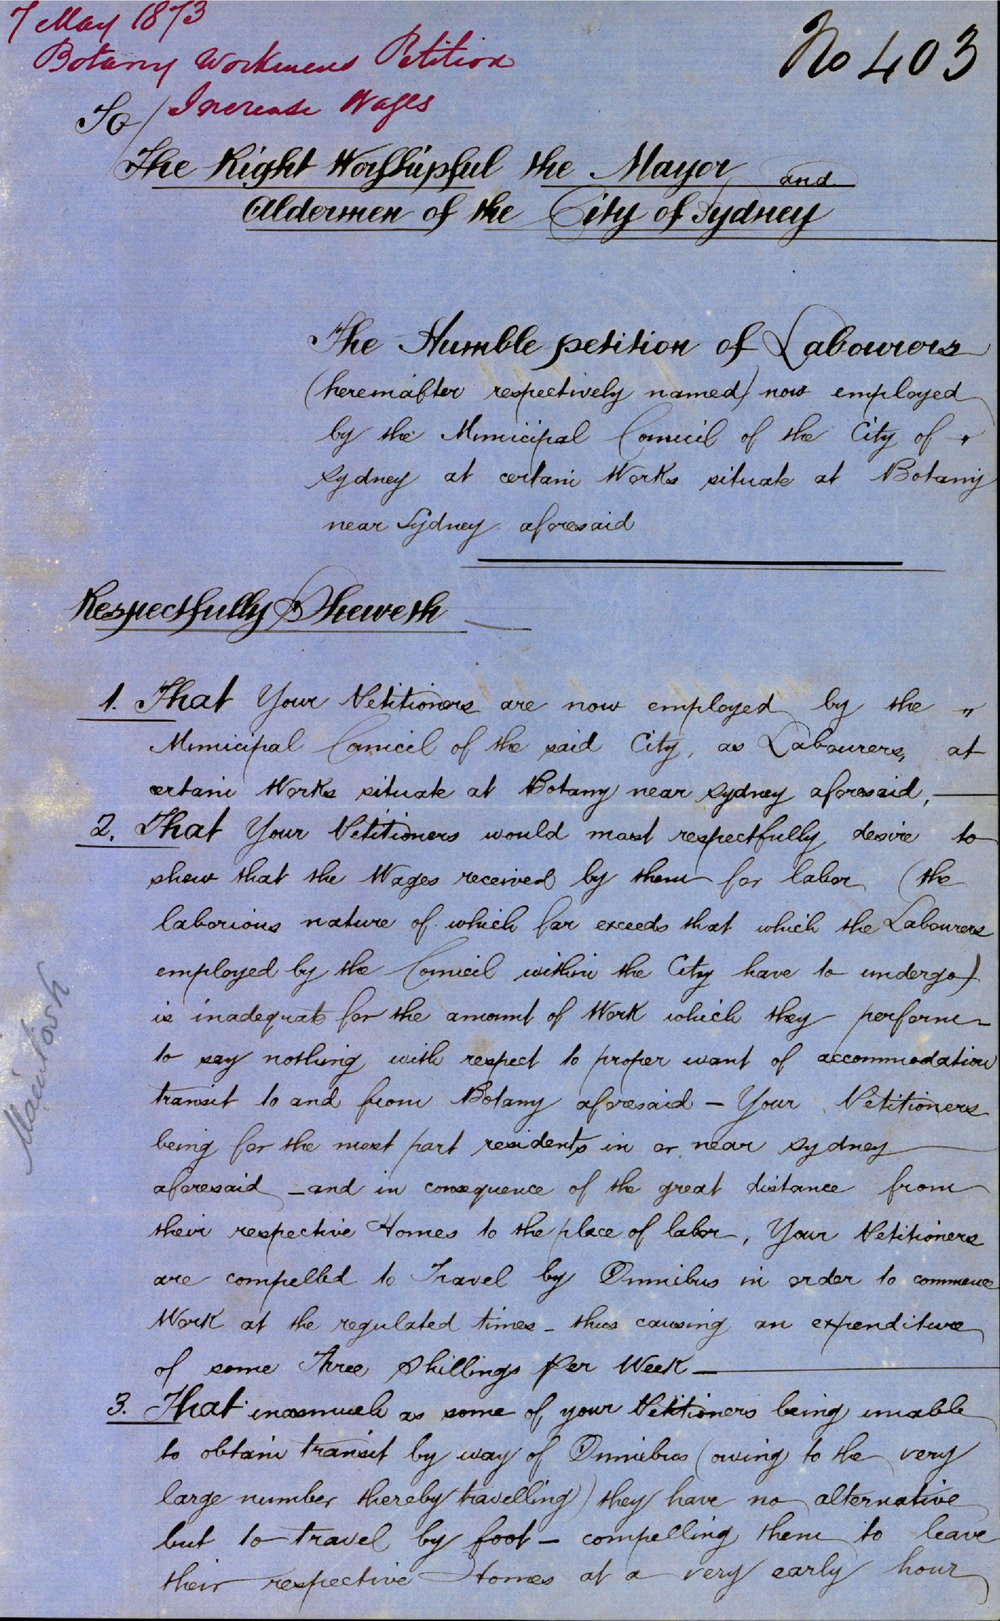 7 May 1873
Botany Workmens Petition
Increase Wages
No 403
To/
The Right Worshipful the Mayor and
Aldermen of the City of Sydney
The Humble petition of Labourers
(hereinafter respectively named) now employed
by the Municipal Council of the City of "
Sydney at certain Works situate at Botany
near Sydney aforesaid
Respectfully Sheweth
1. That Your Petitioners are now employed by the "
Municipal Council of the said City, as Labourers, at
certain Works situate at Botany near Sydney aforesaid,
2. That Your Petitioners would most respectfully desire to
shew that the Wages received by them for labor (the
laborious nature of which far exceeds that which the Labourers
employed by the Council within the City have to undergo)
is inadequate for the amount of Work which they perform
to say nothing with respect to proper want of accommodation
transit to and from Botany aforesaid — Your Petitioners
being for the most part residents in or near Sydney
aforesaid — and in consequence of the great distance from
their respective Homes to the place of labor, Your Petitioners
are compelled to Travel by Omnibus in order to commence
Work at the regulated times — thus causing an expenditure
of some Three Shillings Per Week —
3. That inasmuch as some of your Petitioners being unable
to obtain transit by way of Omnibus (owing to the very
large number thereby travelling) they have no alternative
but to travel by foot — compelling them to leave
their respective Homes at a very early hour
Macintosh